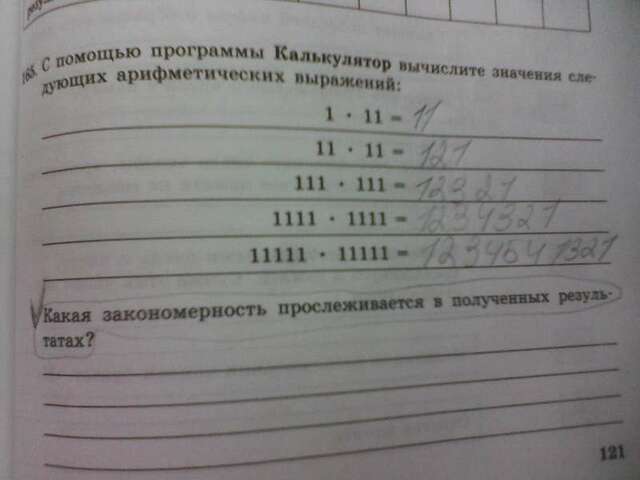 165. С помощью программы Калькулятор вычислите значения сле-
дующих арифметических выражений:
1 · 11 = 11
11 · 11 = 121
111 · 111 = 12321
1111 · 1111 = 1234321
11111 · 11111 = 1234541321
Какая закономерность прослеживается в полученных резуль-
татах?
121